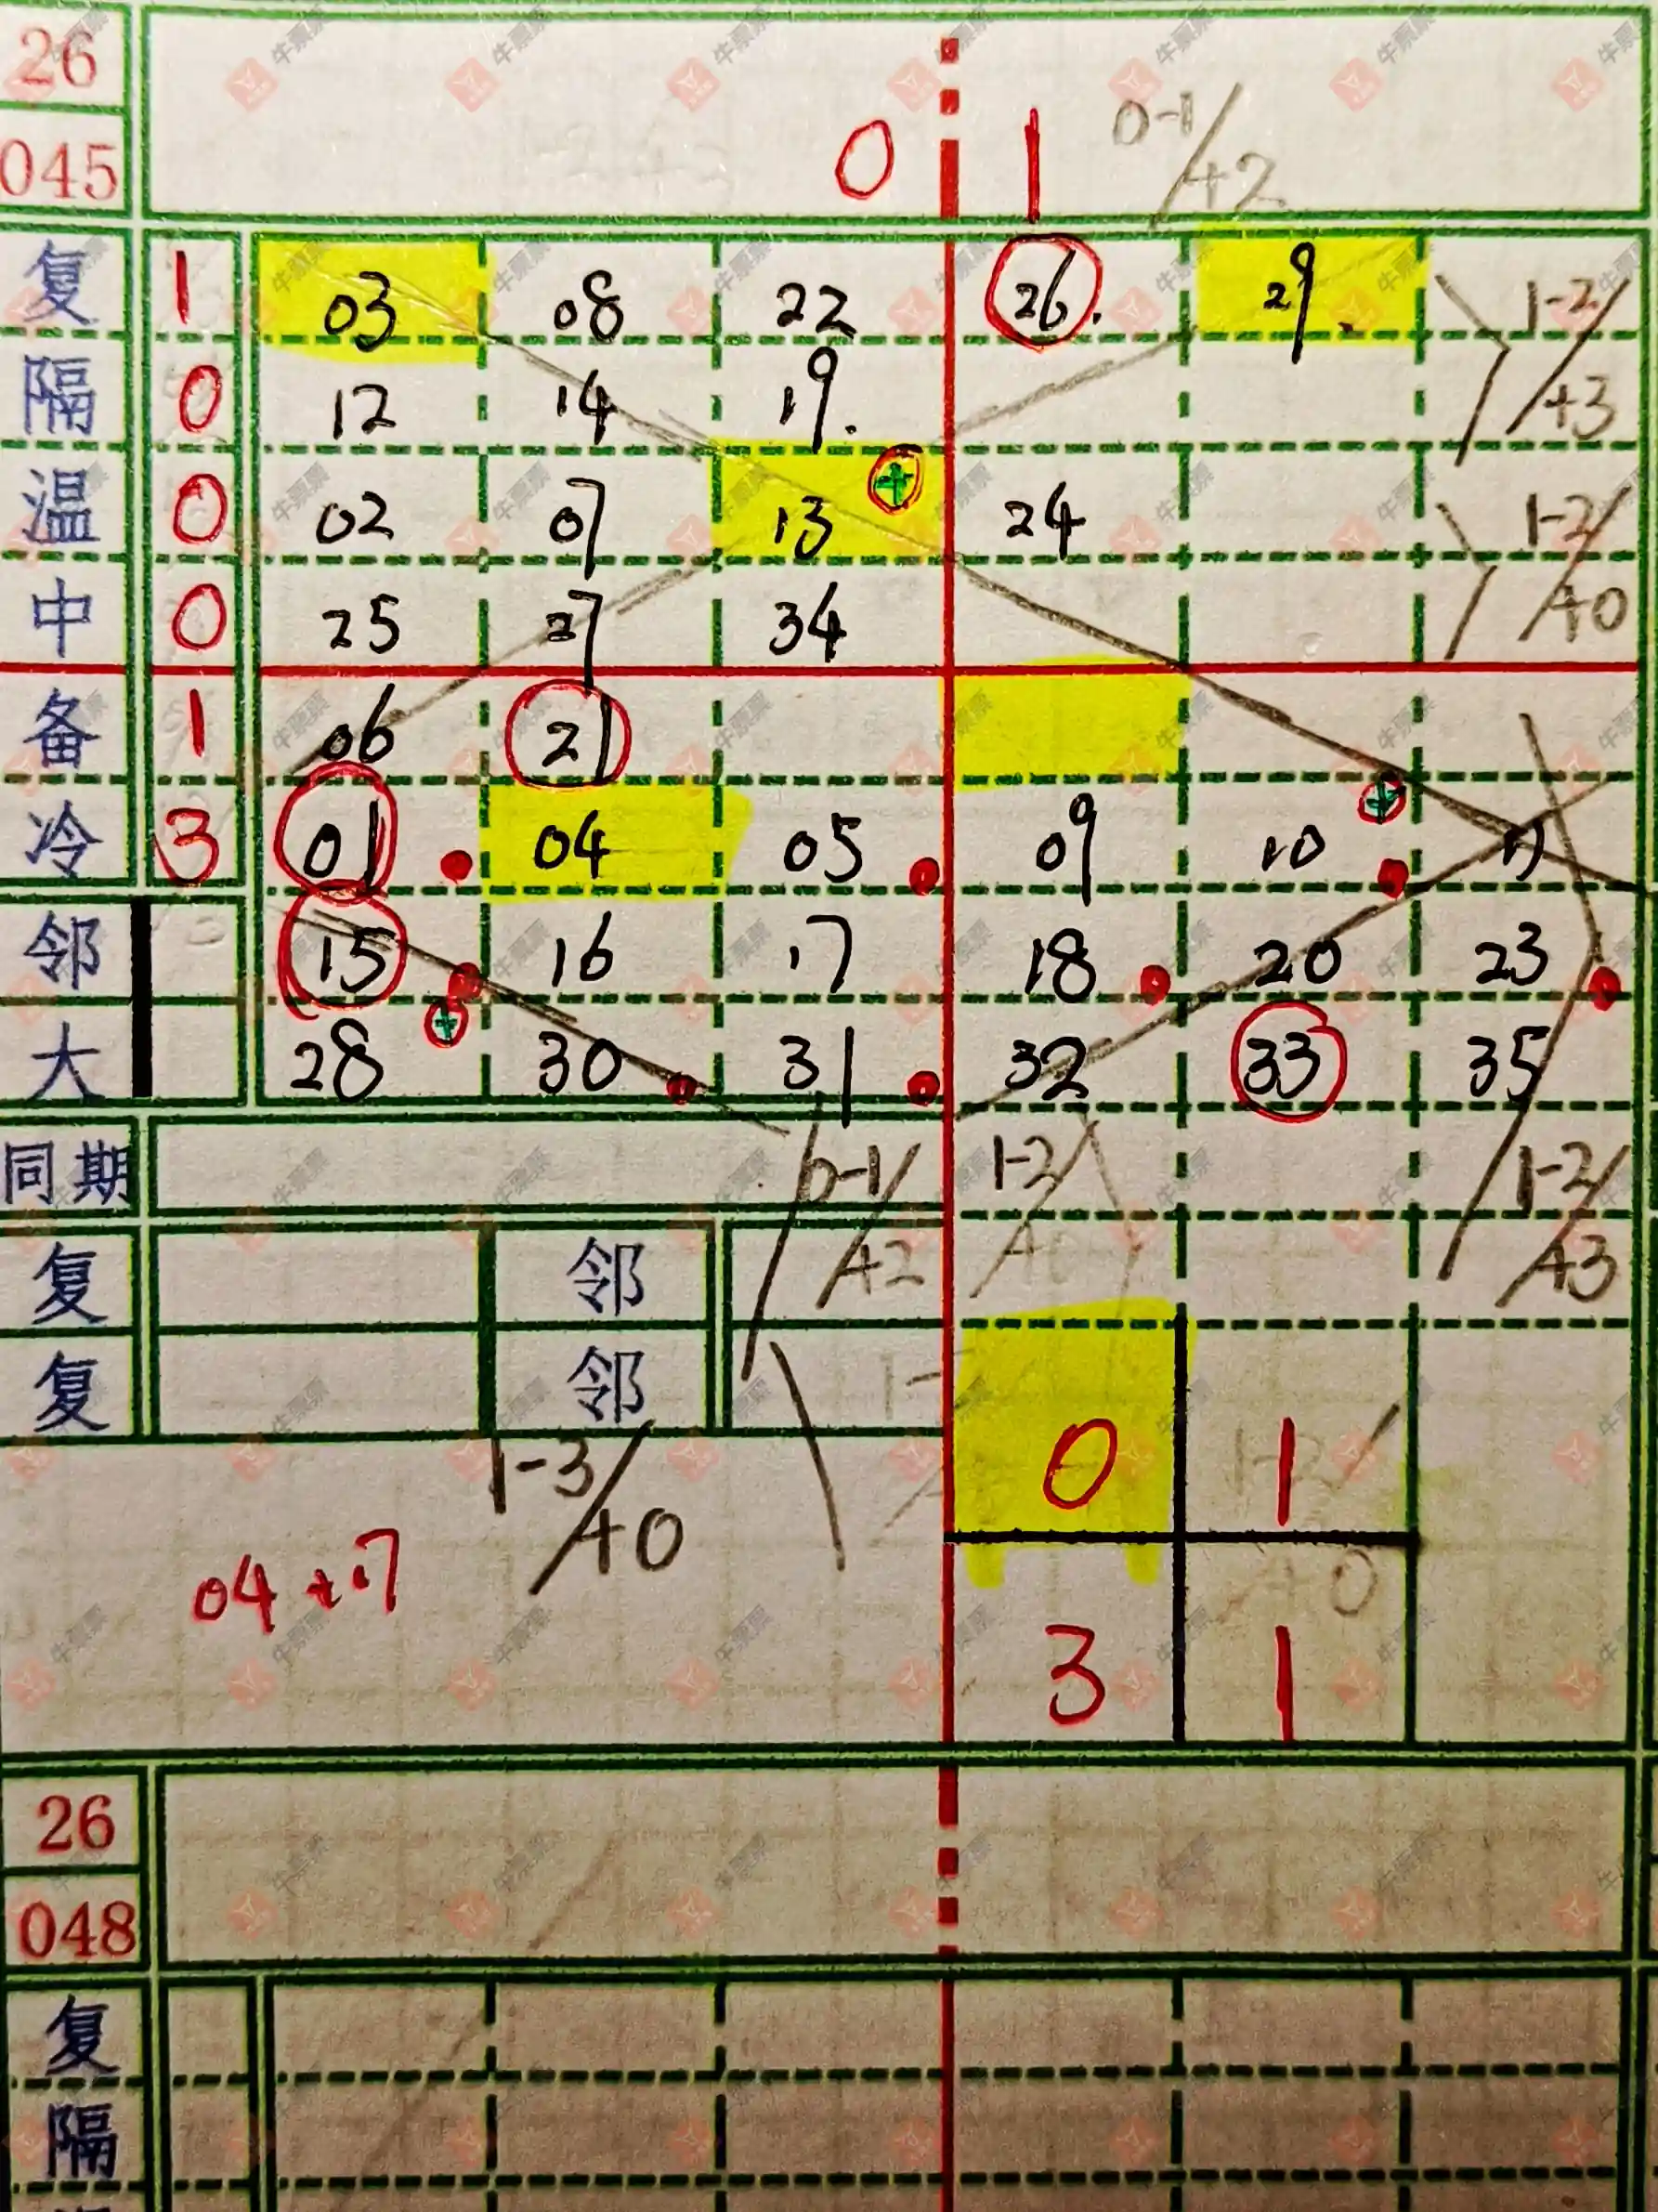 26
045 0 1 0-1/+2
复 1 03 08 22 26. 29. 1-2/+3
隔 0 12 14 19.
温 0 02 07 13 + 24 1-2/+0
中 0 25 27 34
备 1 06 21
冷 3 01 04 05 09 10 + 11
邻 15 16 17 18 20 23
大 28 + 30 31 32 33 35
同期 0-1/+2 1-2/+0 1-2/+3
复 邻
复 邻
1-3/+0 0 1
04 +.7
3 1
26
048
复
隔
牛票票